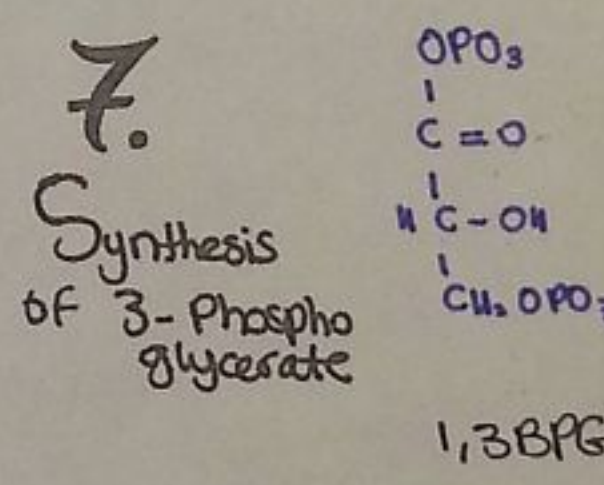 7.
Synthesis
of 3-Phospho
glycerate
OPO₃
C=O
H C-OH
CH₂OPO₃
1,3BPG